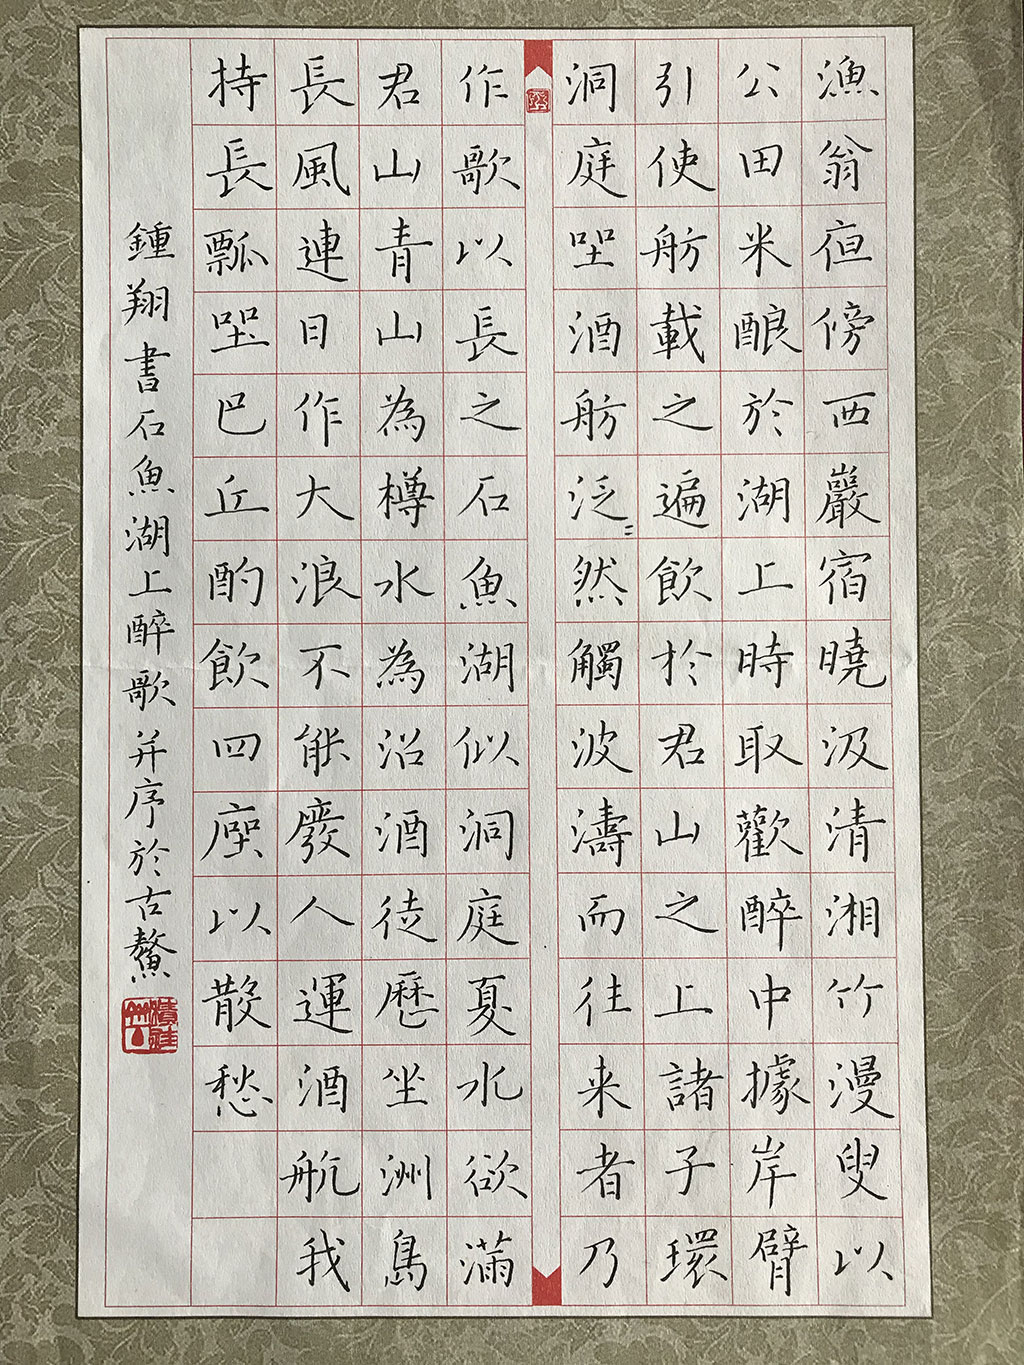 漁翁亱傍西巖宿曉汲清湘竹漫叟以
公田米酿於湖上時取歡醉中據岸臂
引使舫載之遍飲扵君山之上諸子環
洞庭㘴酒舫泛〻然觸波濤而往来者乃
作歌以長之石魚湖似洞庭夏水欲滿
君山青山為樽水為沼酒徒歷坐洲島
長風連日作大浪不能廢人運酒航我
持長瓢㘴巴丘酌飲四座以散愁
鍾翔書石魚湖上醉歌并序於古鰲